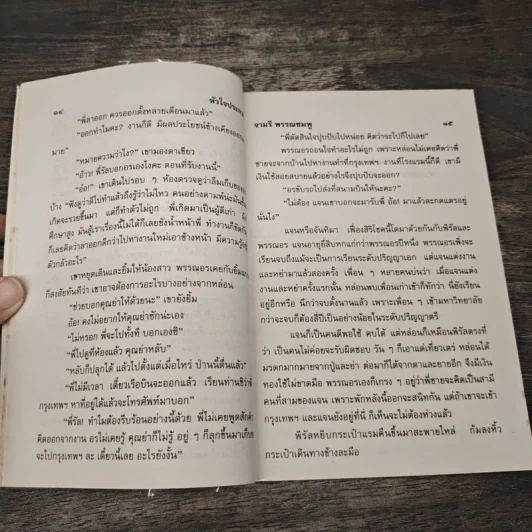 ๑๔
หัวใจประ
"พี่ลาออก ควรออกตั้งหลายเดือนมาแล้ว"
"ออกทำไมคะ? งานก็ดี มีผลประโยชน์ข้างเคียงออก
มาย"
"หมายความว่าไง?" เขามองตาเขียว
"อ้าว! พี่รัลบอกอรเองไงคะ ตอนที่รับงานนี้"
"อ้อ!" เขาเดินไปรอบ ๆ ห้องตรวจดูว่าลืมเก็บของ
บ้าง "ฟังดูว่าดีไปทำแล้วถึงรู้ว่าไม่ไหว คนอย่างตามพ่นะมัน
เกิดจะรวยขึ้นมา แต่ก็ทำตัวไม่ถูก พี่เกิดมาเป็นผู้ดีเก่า
ศึกษาสูง มันสู้เราเรื่องนั้นไม่ได้ก็เลยชังน้ำหน้าพี่ ทำงานก็อึดอัด
ก็เลยคิดว่าลาออกดีกว่าไปหางานใหม่เอาข้างหน้า มีความรู้
ตัวกลัวอะไร"
เขาหยุดเดินและยิ้มให้น้องสาว พรรณอรเคยกับยิ้ม
ก็สงสัยทันทีว่า เขาอาจต้องการอะไรบางอย่างจากหล่อน
"ช่วยบอกคุณย่าให้ด้วยนะ" เขายังยิ้ม
อ้อ! คงไม่อยากให้คุณย่าซักน่ะเอง
"ไม่หรอก พี่จะไปทั้งที่ บอกเองซิ"
"พี่ไปดูที่ห้องแล้ว คุณย่าหลับ"
"หลับก็ปลุกได้ แล้วไปตั้งแต่เมื่อไหร่ ป่านนี้ตื่นแล้ว"
"พี่ไม่มีเวลา เดี๋ยวเรือบินจะออกแล้ว เรียนท่านซีว่า
กรุงเทพฯ หาที่อยู่ได้แล้วจะโทรศัพท์มาบอก"
"พี่รัล! ทำไมต้องรีบร้อนอย่างนี้ด้วย พี่ไม่เคยพูดสัก
คิดออกจากงาน อรไม่เคยรู้ คุณย่าก็ไม่รู้ อยู่ ๆ ก็ลุกขึ้นมาเก็บ
จะไปกรุงเทพฯ ละ เดี๋ยวนี้เลย อะไรยังงั้น"
จามรี พรรณชมพู
๑๕
"พี่ตัดสินใจปุบปับไปหน่อย คิดว่าจะไปก็ไปเลย"
พรรณอรถอนใจทำอะไรไม่ถูก เพราะหล่อนไม่เคยคิดว่าพี่
ชายจะจากบ้านไปหางานทำที่กรุงเทพฯ งานที่โรงแรมนี้ก็ดี เขามี
เงินใช้สอยสบายแล้วอย่างไรจึงปุบปับจะออก?
"อรขับรถไปส่งที่สนามบินให้นะคะ?"
"ไม่ต้อง แจนเขาบอกจะมารับพี่ อ้อ! มาแล้วละกดแตรอยู่
นั่นไง"
แจนหรือจันทิมา เพื่อสิริโชคนี้โตมาด้วยกันกับพิรัลและ
พรรณอร แจนอายุยี่สิบหกแก่กว่าพรรณอรปีหนึ่ง พรรณอรเพิ่งจะ
เรียนจบถึงแม้จะเป็นการเรียนระดับปริญญาเอก แต่แจนแต่งงาน
และหย่ามาแล้วสองครั้ง เพื่อน ๆ หลายคนบ่นว่า เมื่อแจนแต่ง
งานและหย่าครั้งแรกนั้น หล่อนพบเพื่อนเก่าเข้าก็ทักว่า นี่ยังเรียน
อยู่อีกหรือ นึกว่าจบตั้งนานแล้ว เพราะเพื่อน ๆ เข้ามหาวิทยาลัย
กว่าจะจบก็ต้องสี่ปีเป็นอย่างน้อยในระดับปริญญาตรี
แจนก็เป็นคนดีพอใช้ คบได้ แต่หล่อนก็เหมือนพิรัลตรงที่
ว่า เป็นคนไม่ค่อยจะรับผิดชอบ วัน ๆ ก็เอาแต่เที่ยวเตร่ หล่อนได้
มรดกมากมายจากปู่และย่า ต่อมาก็ได้จากตาและยายอีก จึงมีเงิน
ทองใช้ไม่ขาดมือ พรรณอรเองก็เกรง ๆ อยู่ว่าพี่ชายจะคิดเป็นสามี
คนที่สามของแจน เพราะพักหลังนี้ออกจะสนิทกัน แต่ถ้าเขาจะเข้า
กรุงเทพฯ และแจนยังอยู่ที่นี่ ก็เห็นจะไม่ต้องห่วงแล้ว
พิรัลหยิบกระเป๋าแรมคืนขึ้นมาสะพายไหล่ ก้มลงหิ้ว
กระเป๋าเดินทางข้างละมือ